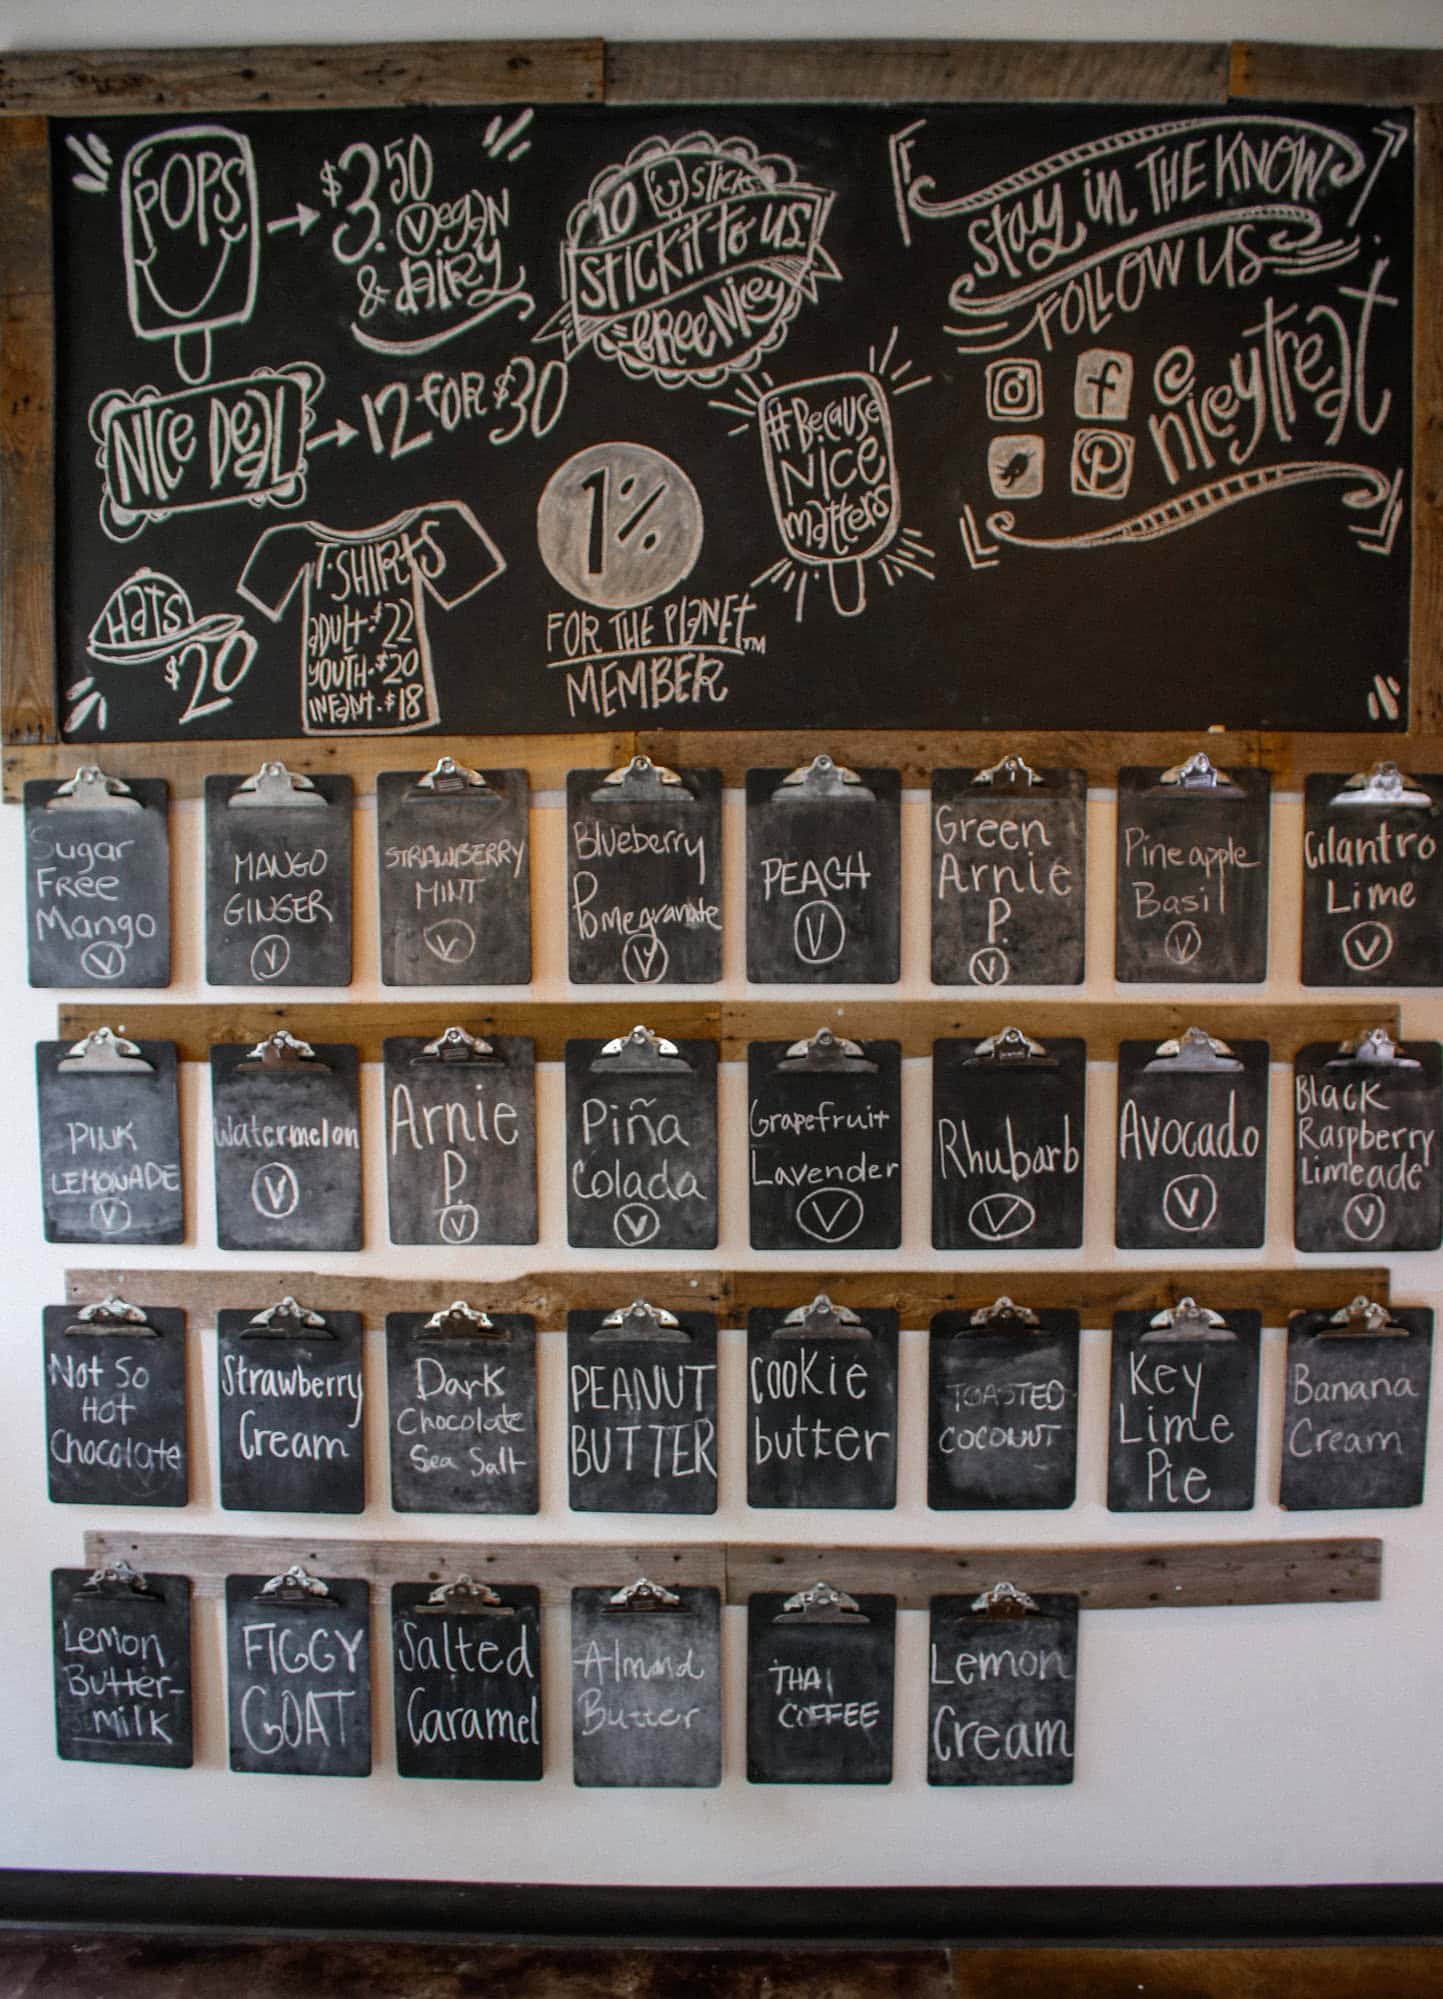 POPS
$3.50
Vegan
& dairy
NICE DEAL
12 FOR $30
HATS
$20
T-SHIRTS
ADULT-$22
YOUTH-$20
INFANT-$18
10 STICKS
STICK IT TO US!
=FREE NICEY
1%
FOR THE PLANET™
MEMBER
#Because
NICE
matters
Stay in THE KNOW
FOLLOW US
@
niceytreat
Sugar
Free
Mango
V
MANGO
GINGER
V
STRAWBERRY
MINT
V
Blueberry
Pomegranate
V
PEACH
V
Green
Arnie
P.
V
Pineapple
Basil
V
Cilantro
Lime
V
PINK
LEMONADE
V
Watermelon
V
Arnie
P.
V
Piña
Colada
V
Grapefruit
Lavender
V
Rhubarb
V
Avocado
V
Black
Raspberry
Limeade
V
Not So
Hot
Chocolate
Strawberry
Cream
Dark
Chocolate
Sea Salt
PEANUT
BUTTER
COOKie
butter
TOASTED
COCONUT
Key
Lime
Pie
Banana
Cream
Lemon
Butter-
milk
FIGGY
GOAT
Salted
Caramel
Almond
Butter
THAI
COFFEE
Lemon
Cream